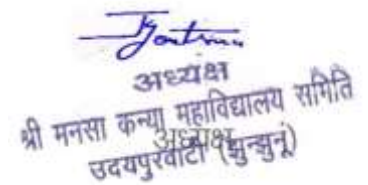 अध्यक्ष
श्री मनसा कन्या महाविद्यालय समिति
अध्यक्ष
उदयपुरवाटी (झुन्झुनूं)